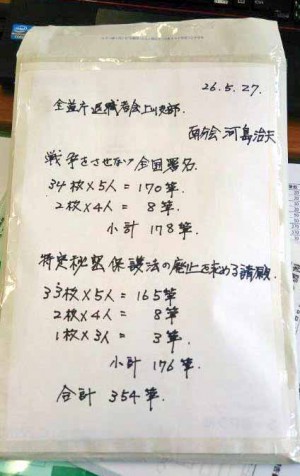 26.5.27.
全道庁退職者会上川支部.
西分会 河島治夫
戦争をさせない全国署名.
34枚×5人 = 170筆.
2枚×4人 = 8筆.
小計 178筆.
特定秘密保護法の廃止を求める請願.
33枚×5人 = 165筆
2枚×4人 = 8筆
1枚×3人 = 3筆.
小計 176筆.
合計 354筆.